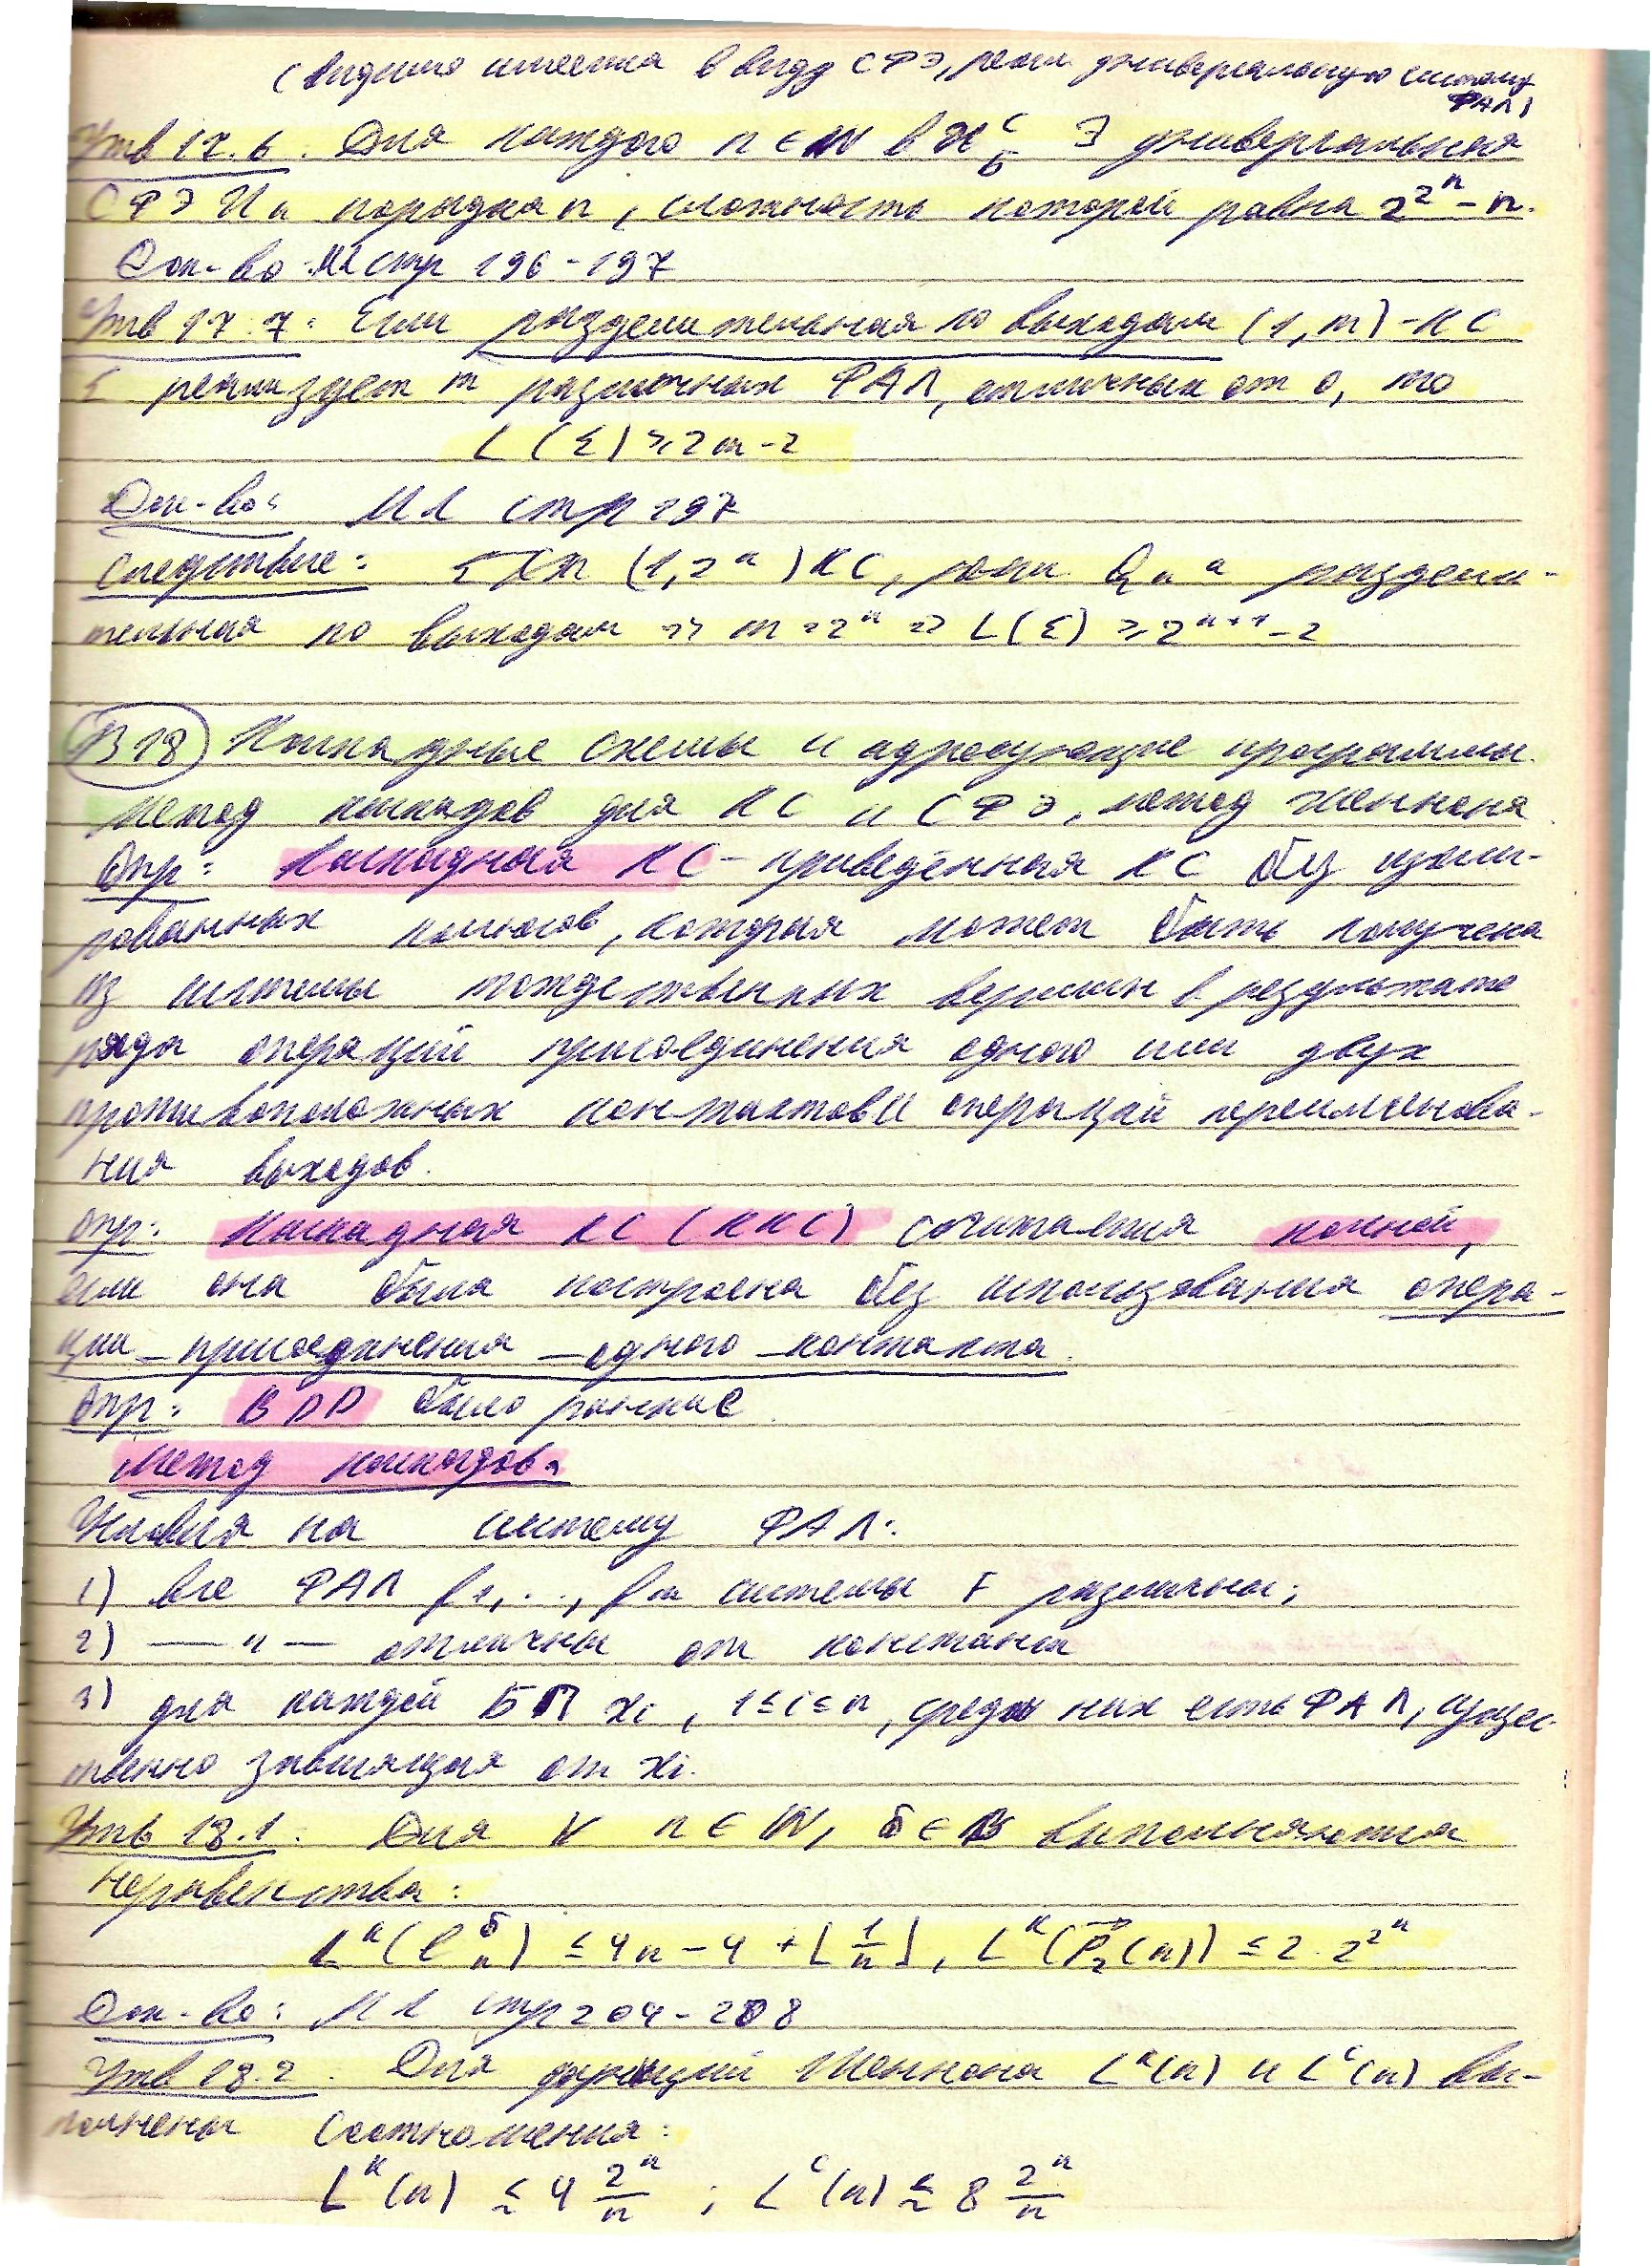 (видимо имеется в виду СФЭ, реал. универсальную систему
ФАЛ)
Утв 17.6. Для каждого n ∈ N в U^C_Б ∃ универсальная
СФЭ U_n порядка n, сложность которой равна 2^{2^n} - n.
Док-во МЛ стр 196-197
Утв 17.7: Если разделительная по выходам (1,m)-КС
Σ реализует m различных ФАЛ, отличных от 0, то
L(Σ) ≥ 2m-2
Док-во: МЛ стр 197
Следствие: (1,2^n) КС, реал. Q_n а раздели-
тельная по выходам => m = 2^n => L(Σ) ≥ 2^{n+1} - 2
В18) Каскадные схемы и адресующие программы.
Метод каскадов для КС и СФЭ, метод Шеннона.
Опр: Каскадная КС - приведённая КС без изоли-
рованных полюсов, которая может быть получена
из системы тождественных вершин в результате
ряда операций присоединения одного или двух
противоположных контактов и операций переименова-
ния выходов.
Опр: Каскадная КС (ККС) считается полной,
если она была построена без использования опера-
ции присоединения одного контакта.
Опр: BDD было раньше.
Метод каскадов.
Условия на систему ФАЛ:
1) все ФАЛ f1,..., fm системы F различны;
2) — " — отличны от констант
3) для каждой БП xi, 1≤i≤n, среди них есть ФАЛ, сущес-
твенно зависящая от xi.
Утв 18.1. Для ∀ n ∈ N, б ∈ B выполняются
неравенства:
L^K(l^б_n) ≤ 4n-4 + ⌊1/n⌋, L^K(P⃗_2(n)) ≤ 2·2^{2^n}
Док-во: МЛ стр 204-208
Утв 18.2. Для функций Шеннона L^K(n) и L^C(n) вы-
полнены соотношения:
L^K(n) ≲ 4 2^n/n ; L^C(n) ≲ 8 2^n/n